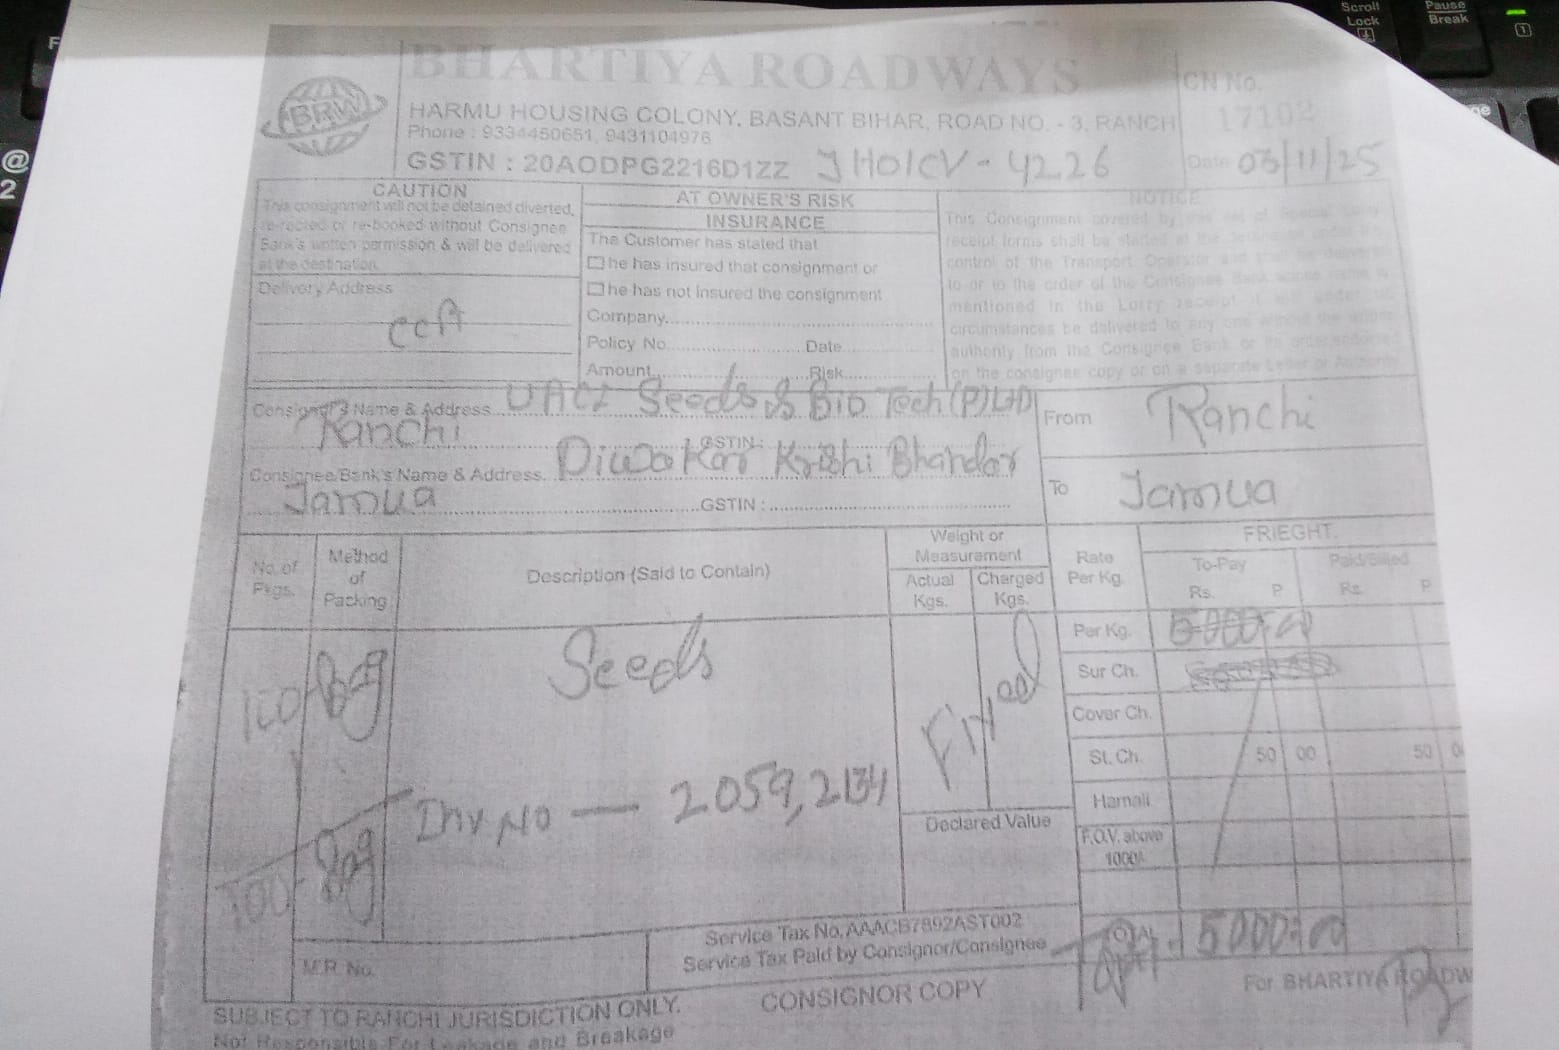 BHARTIYA ROADWAYS
BRW
HARMU HOUSING COLONY, BASANT BIHAR, ROAD NO. - 3, RANCH
Phone : 9334450651, 9431104976
GSTIN : 20AODPG2216D1ZZ JH01CV-4226
CN No.
17102
Date 03/11/25
CAUTION
This consignment will not be detained diverted,
re-routed or re-booked without Consignee
Bank's written permission & will be delivered
at the destination.
Delivery Address
AT OWNER'S RISK
INSURANCE
The Customer has stated that
he has insured that consignment or
he has not insured the consignment
Company
Policy No. Date
Amount Risk
NOTICE
This Consignment covered by this set of Special Lorry
receipt forms shall be at the destination under the
control of the Transport Operator and shall be delivered
to or to the order of the Consignee Bank whose name is
mentioned in the Lorry receipt. It will under no
circumstances be delivered to any one without the written
authority from the Consignee Bank or its order endorsed
on the consignee copy or on a separate Letter or Authority
Consignor's Name & Address UACI Seeds & Bio Tech (P) LTD
Ranchi GSTIN :
Consignee/Bank's Name & Address Diwakar Krishi Bhandar
Jamua GSTIN :
From Ranchi
To Jamua
No. of Pkgs.
Method of Packing
Description (Said to Contain)
Weight or Measurament
Actual Kgs.
Charged Kgs.
Rate Per Kg.
FRIEGHT
To-Pay
Rs. P
Paid/Billed
Rs. P
100 Bag
Seeds
Fixed
Per Kg.
Sur Ch.
Cover Ch.
St. Ch. 50 00 50 0
Hamali
F.O.V. above
1000/-
Inv No — 2059, 2134
100 - Bag
Declared Value
TOTAL 5000=00
Service Tax No. AAACB7892AST002
Service Tax Paid by Consignor/Consignee
M.R. No.
SUBJECT TO RANCHI JURISDICTION ONLY.
CONSIGNOR COPY
For BHARTIYA ROADW
Not Responsible For Leakage and Breakage
Scroll Lock
Pause Break
@
2
F
1